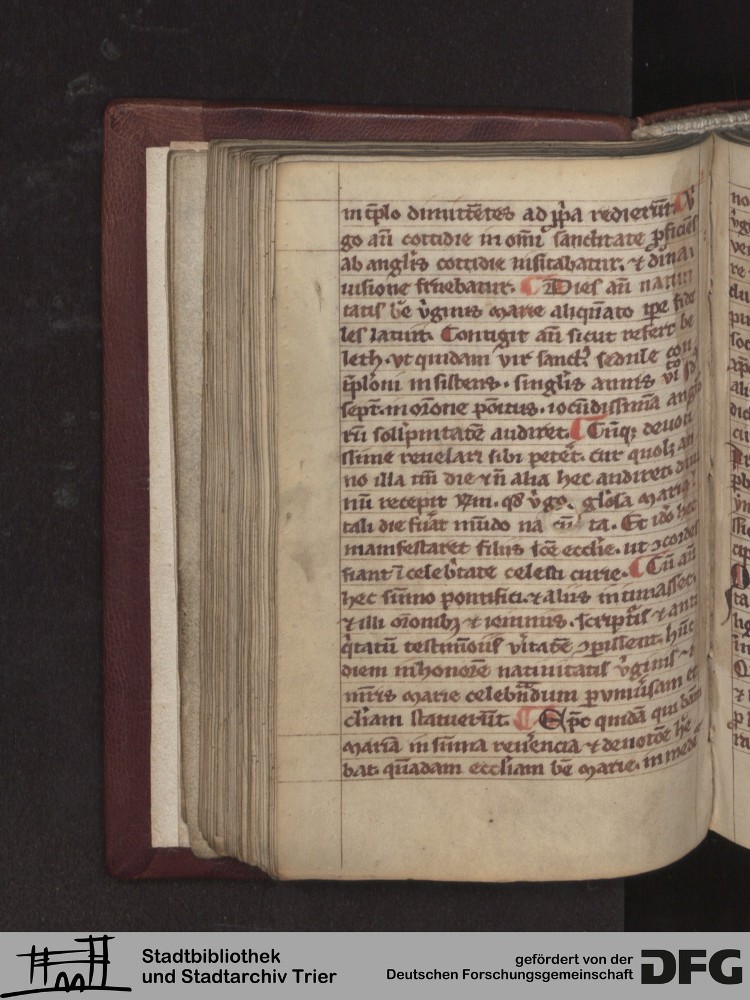 in tp̄lo dimittētes ad ꝓp̄a redierūt. V̓
go aū cottidie in om̄i sanctitate ꝓficiēs
ab angl̓is cottidie uisitabatur. ⁊ diuīa
uisione fruebatur. ¶ Dies aū natiui
tatis bē v̓ginis marie aliqn̄ato tp̄e fide
les latuit. Contigit aū sicut refert be
leth. vt quidam vir sanctꝰ sedule con
tēploni insistens. singl̓is annis vi to jdꝰ
sept. in or̄one positus. iocūdissimā ange
rū sollēpnitatē audiret. ¶ Cūq; deuoti
ssime reuelari sibi peteret. cur quol; an
no illa tm̄ die ⁊ n̄ alia hec audiret. diui
nū recepit r̄sm. qd̓ v̓go gl̓osa maria
tali die fuāt mūdo na ta. Et ido hec
manifestaret filiis scē ecclie. ut ɔcordes
fiant ī celeb̓tate celesti curie. ¶ Cū aū
hec sūmo pontifici. ⁊ aliis intimasset.
⁊ illi or̄onibȝ ⁊ ieiuniis. scriptis ⁊ anti
q̓tatū testimoniis v̓itatē ɔpissent. hūc
diem in honorē natiuitatis v̓ginis
mr̄is marie celebn̄dum vniu̓sam ec
cliam statuerūt. ¶ Ep̄c quidā qui bāīn
mariā in sūma reu̓encia ⁊ deuotōe hē
bat. quadam eccliam bē marie. in medē
Stadtbibliothek
und Stadtarchiv Trier
gefördert von der
Deutschen Forschungsgemeinschaft
DFG